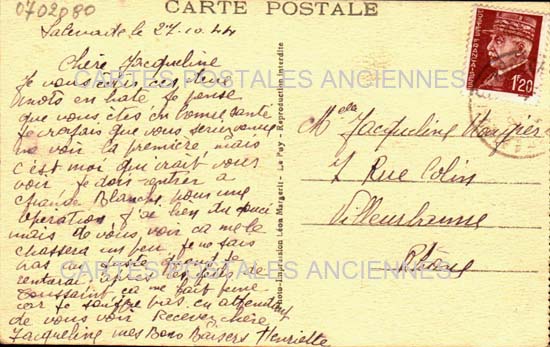 0702080
CARTE POSTALE
le 27.10.44
Chère Jacqueline
Je vous écris ces deux
mots en hate je pense
que vous êtes en bonne santé
Je croyais que vous seriez venue
me voir la première mais
c'est moi qui irait vous
voir je dois entrer à
Blanche pour une
opération j'ai bien du souci
mais de vous voir ca me le
chassera un peu je ne sais
pas au juste quand je
rentrerai après
Toussaint ca me fait peine
car je souffre pas en attendant
de vous voir Recevez chère
Jacqueline mes Bons Baisers Henriette
Photo-Impression Léon Margerit - Le Puy - Reproduction interdite
1F20
Melle Jacqueline
7 Rue Colin
Villeurbanne
Rhône
CARTES POSTALES ANCIENNES
CARTES POSTALES ANCIENNES